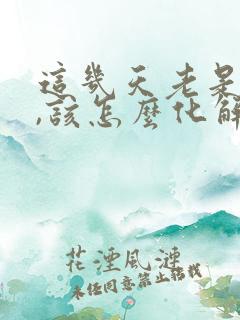 這幾天老是
,該怎麼化解
花湮風漣
未经同意禁止转载